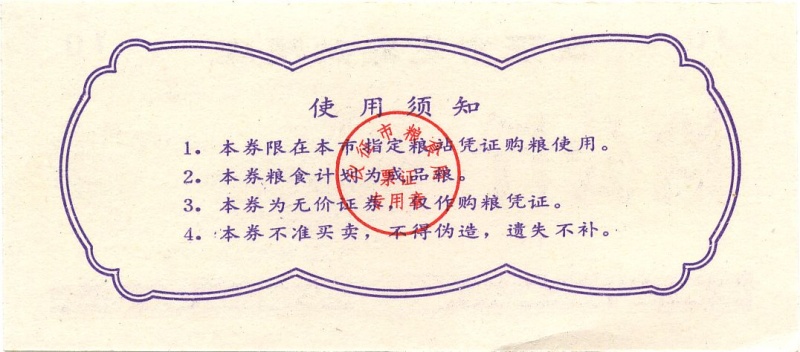 使用须知
1. 本券限在本市指定粮站凭证购粮使用。
2. 本券粮食计划为成品粮。
3. 本券为无价证券，仅作购粮凭证。
4. 本券不准买卖，不得伪造，遗失不补。
市粮食局
票证
专用章